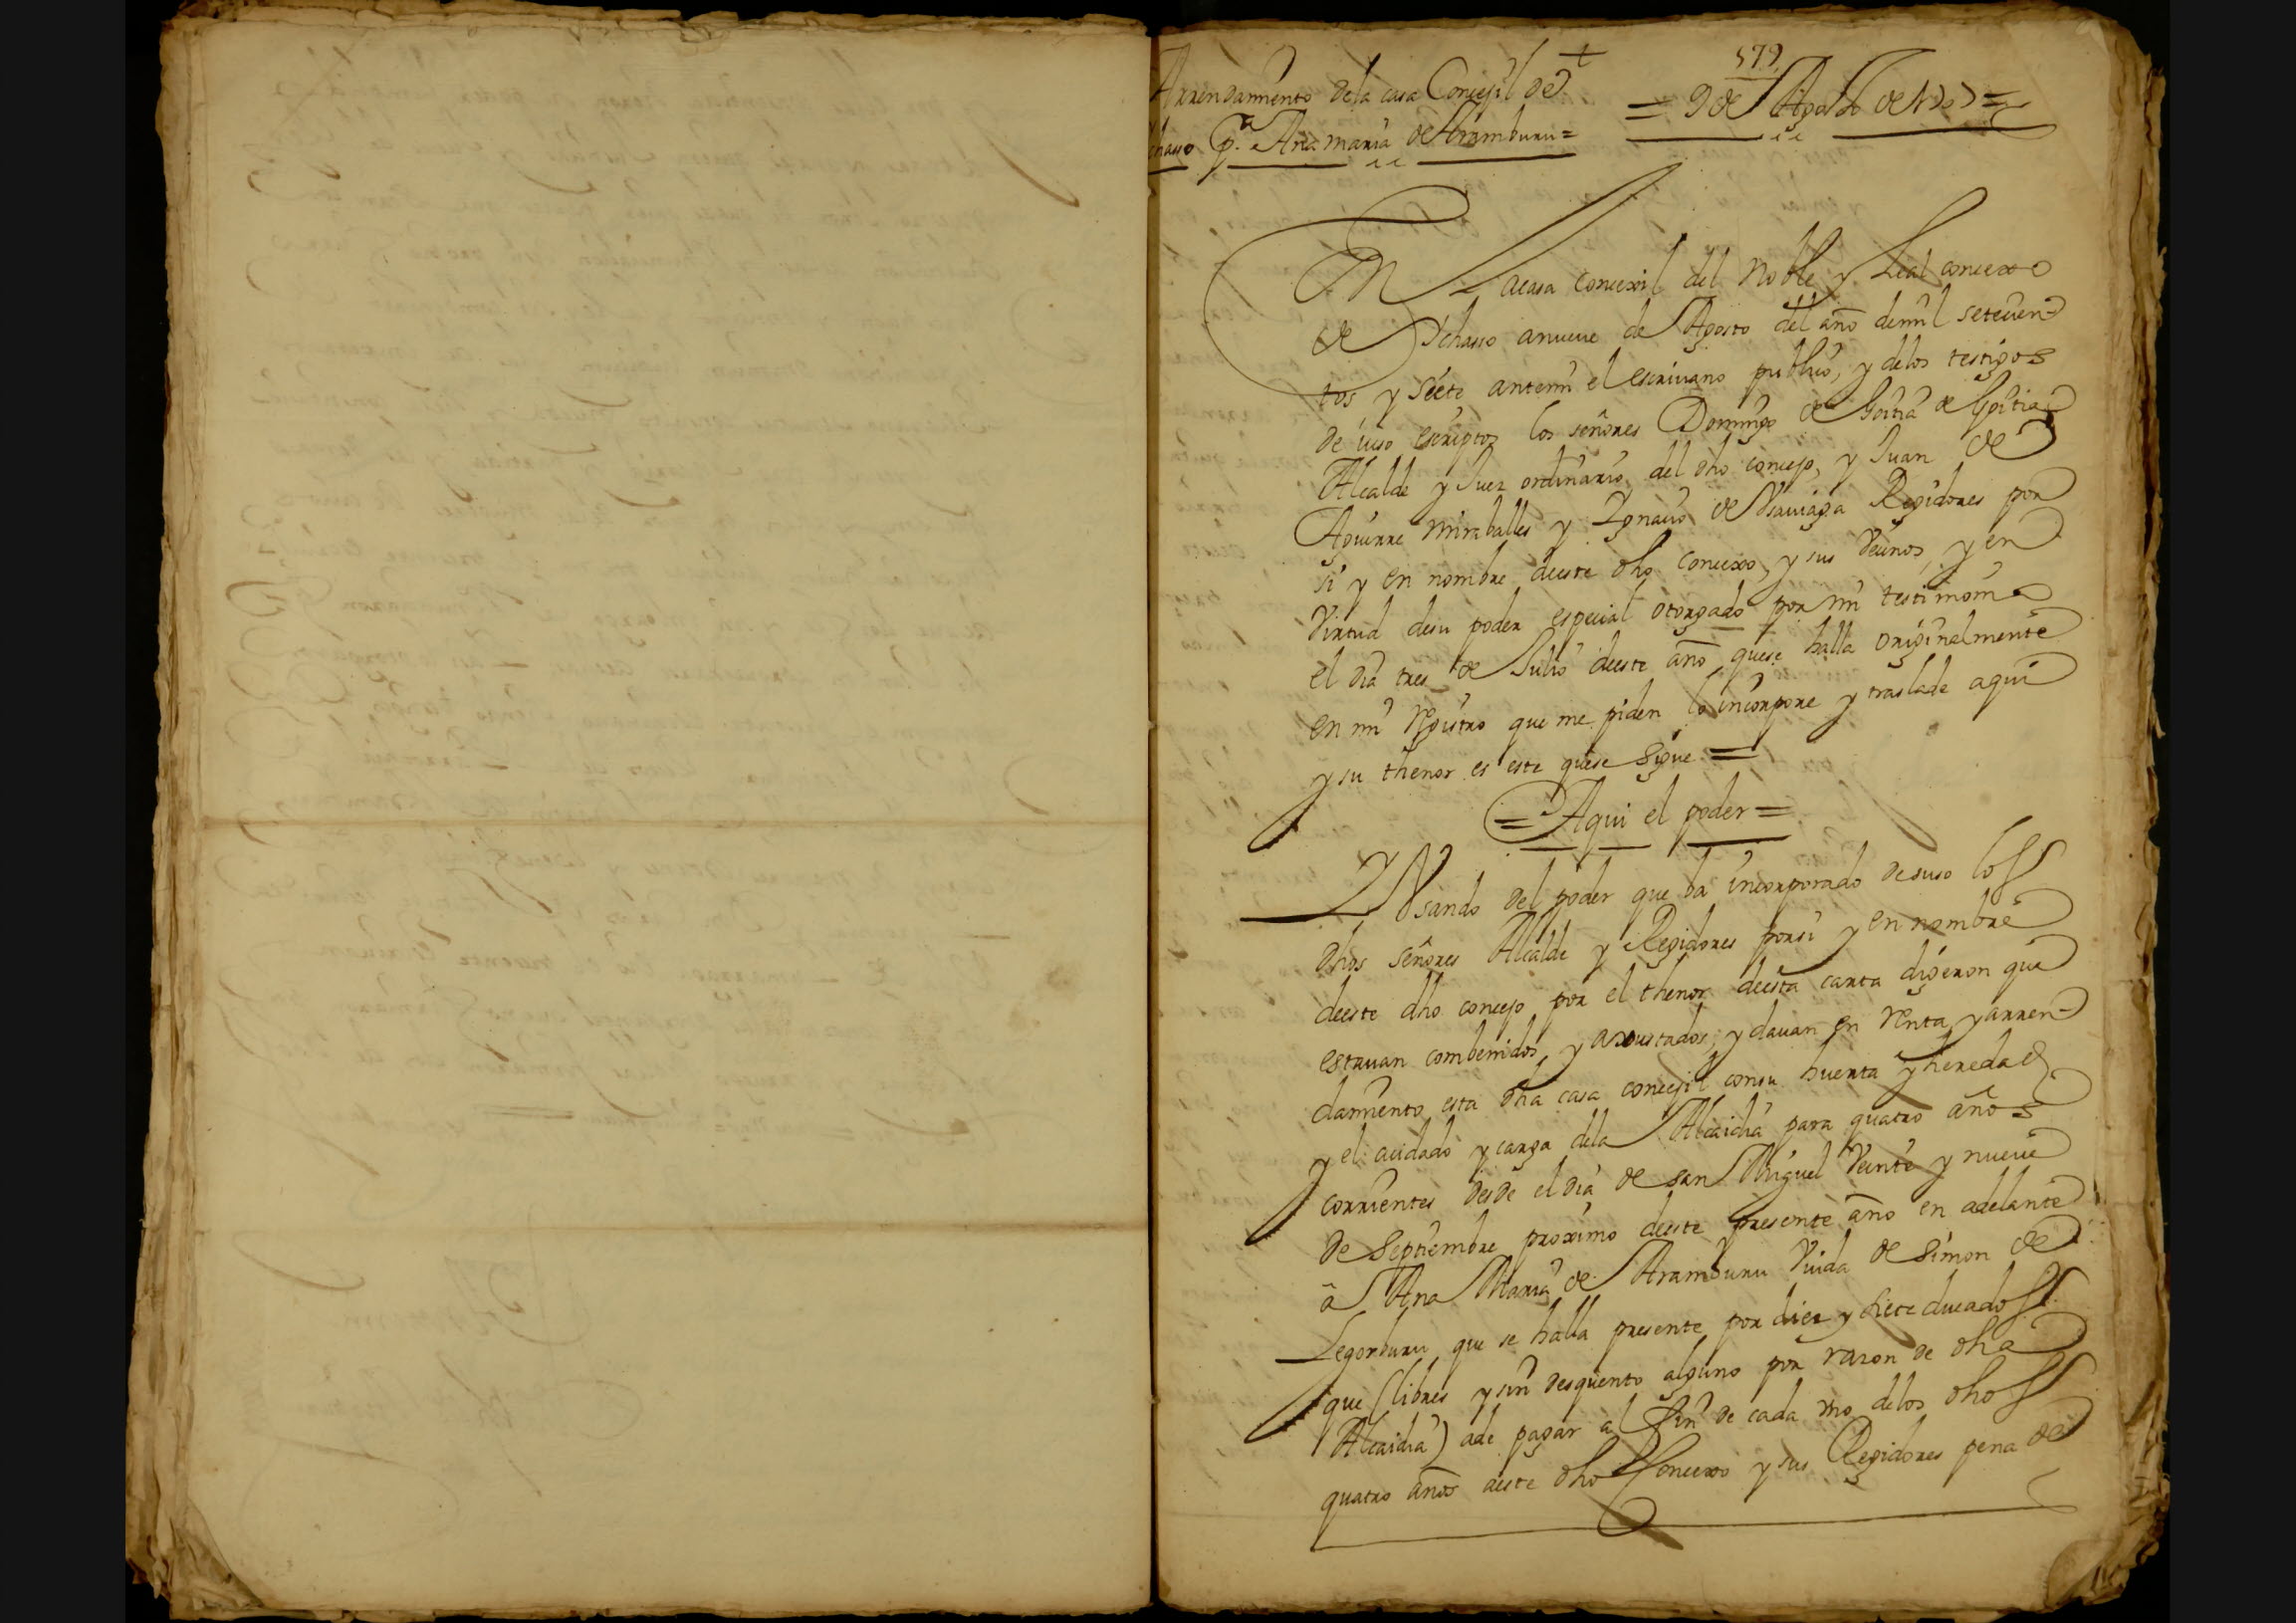 579
Arrendamiento dela casa Concejil de
= 9 de Agosto de 1707 =
Ichasso pª. Ana maria de Aramburu =
En Lacasa concexil del Noble y Leal concexo
de Ichasso anueue de Agosto del año demil setecien
tos y siete antemi el escriuano publico, y delos testigos
de iuso escriptos los señores Domingo de Goitia
Alcalde y Juez ordinario del dho concejo, y Juan de
Aguirre miraballes y Ignacio de Vsauiaga Regidores por
si y en nombre deeste dho concexo, y sus vecinos, y en
Virtud desu poder especial otorgado por mi testimonio
el dia tres de Julio deeste año quese halla originalmente
en mi registro que me piden lo incorpore y traslade aqui
y su thenor es este quese sigue =
= Aqui el poder =
Vsando del poder que ba incorporado desuso los
dhos señores Alcalde y Regidores porsi y en nombre
deeste dho concejo por el thenor deesta carta digeron que
estauan combenidos y axustados, y dauan en renta yarren
damiento esta dha casa concejil consu huerta y heredades
y el cuidado y carga dela Alcaidia para quatro años
corrientes desde el dia de san Miguel veinte y nueue
de Septiembre proximo deeste presente año en adelante
â Ana Maria de Aramburu Viuda de Simon de
Legorburu que se halla presente por diez y siete ducados
que (libres y sin desquento alguno por razon de dha
Alcaidia) ade pagar al fin de cada vno delos dhos
quatro años aeste dho Concexo y sus Regidores pena de